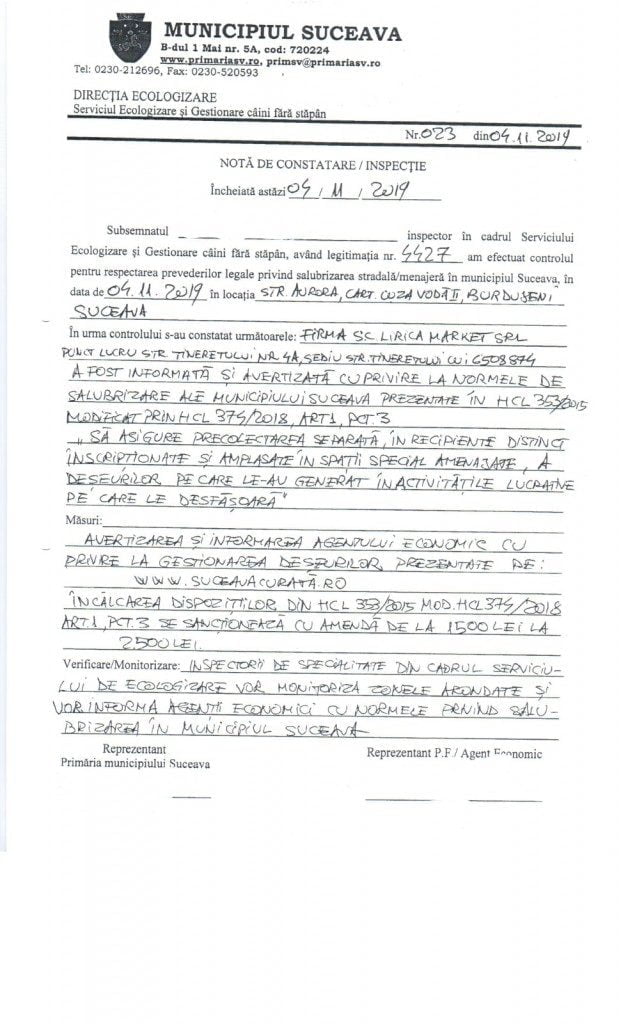 MUNICIPIUL SUCEAVA
B-dul 1 Mai nr. 5A, cod: 720224
www.primariasv.ro, primsv@primariasv.ro
Tel: 0230-212696, Fax: 0230-520593
DIRECȚIA ECOLOGIZARE
Serviciul Ecologizare și Gestionare câini fără stăpân
Nr. 023 din 04.11.2019
NOTĂ DE CONSTATARE / INSPECȚIE
Încheiată astăzi 04 / 11 / 2019
Subsemnatul inspector în cadrul Serviciului
Ecologizare și Gestionare câini fără stăpân, având legitimația nr. 4427 am efectuat controlul
pentru respectarea prevederilor legale privind salubrizarea stradală/menajeră în municipiul Suceava, în
data de 04.11.2019 în locația STR. AURORA, CART. CUZA VODĂ II, BURDUJENI
SUCEAVA
În urma controlului s-au constatat următoarele: FIRMA SC. LIRICA MARKET SRL
PUNCT LUCRU STR. TINERETULUI NR. 4A, SEDIU STR. TINERETULUI CUI 6508874
A FOST INFORMATĂ ȘI AVERTIZATĂ CU PRIVIRE LA NORMELE DE
SALUBRIZARE ALE MUNICIPIULUI SUCEAVA PREZENTATE ÎN HCL 353/2015
MODIFICAT PRIN HCL 374/2018, ART.1, PCT.3
„SĂ ASIGURE PRECOLECTAREA SEPARATĂ, ÎN RECIPIENTE DISTINCT
INSCRIPȚIONATE ȘI AMPLASATE ÎN SPAȚII SPECIAL AMENAJATE, A
DEȘEURILOR PE CARE LE-AU GENERAT ÎN ACTIVITĂȚILE LUCRATIVE
PE CARE LE DESFĂȘOARĂ"
Măsuri:
AVERTIZAREA ȘI INFORMAREA AGENTULUI ECONOMIC CU
PRIVIRE LA GESTIONAREA DEȘEURILOR PREZENTATE PE:
WWW.SUCEAVACURATĂ.RO
ÎNCĂLCAREA DISPOZIȚIILOR DIN HCL 353/2015 MOD. HCL 374/2018
ART.1, PCT.3 SE SANCȚIONEAZĂ CU AMENDĂ DE LA 1500 LEI LA
2500 LEI.
Verificare/Monitorizare: INSPECTORII DE SPECIALITATE DIN CADRUL SERVICIU-
LUI DE ECOLOGIZARE VOR MONITORIZA ZONELE ARONDATE ȘI
VOR INFORMA AGENȚII ECONOMICI CU NORMELE PRIVIND SALU-
BRIZAREA ÎN MUNICIPIUL SUCEAVA
Reprezentant
Primăria municipiului Suceava
Reprezentant P.F./ Agent Economic